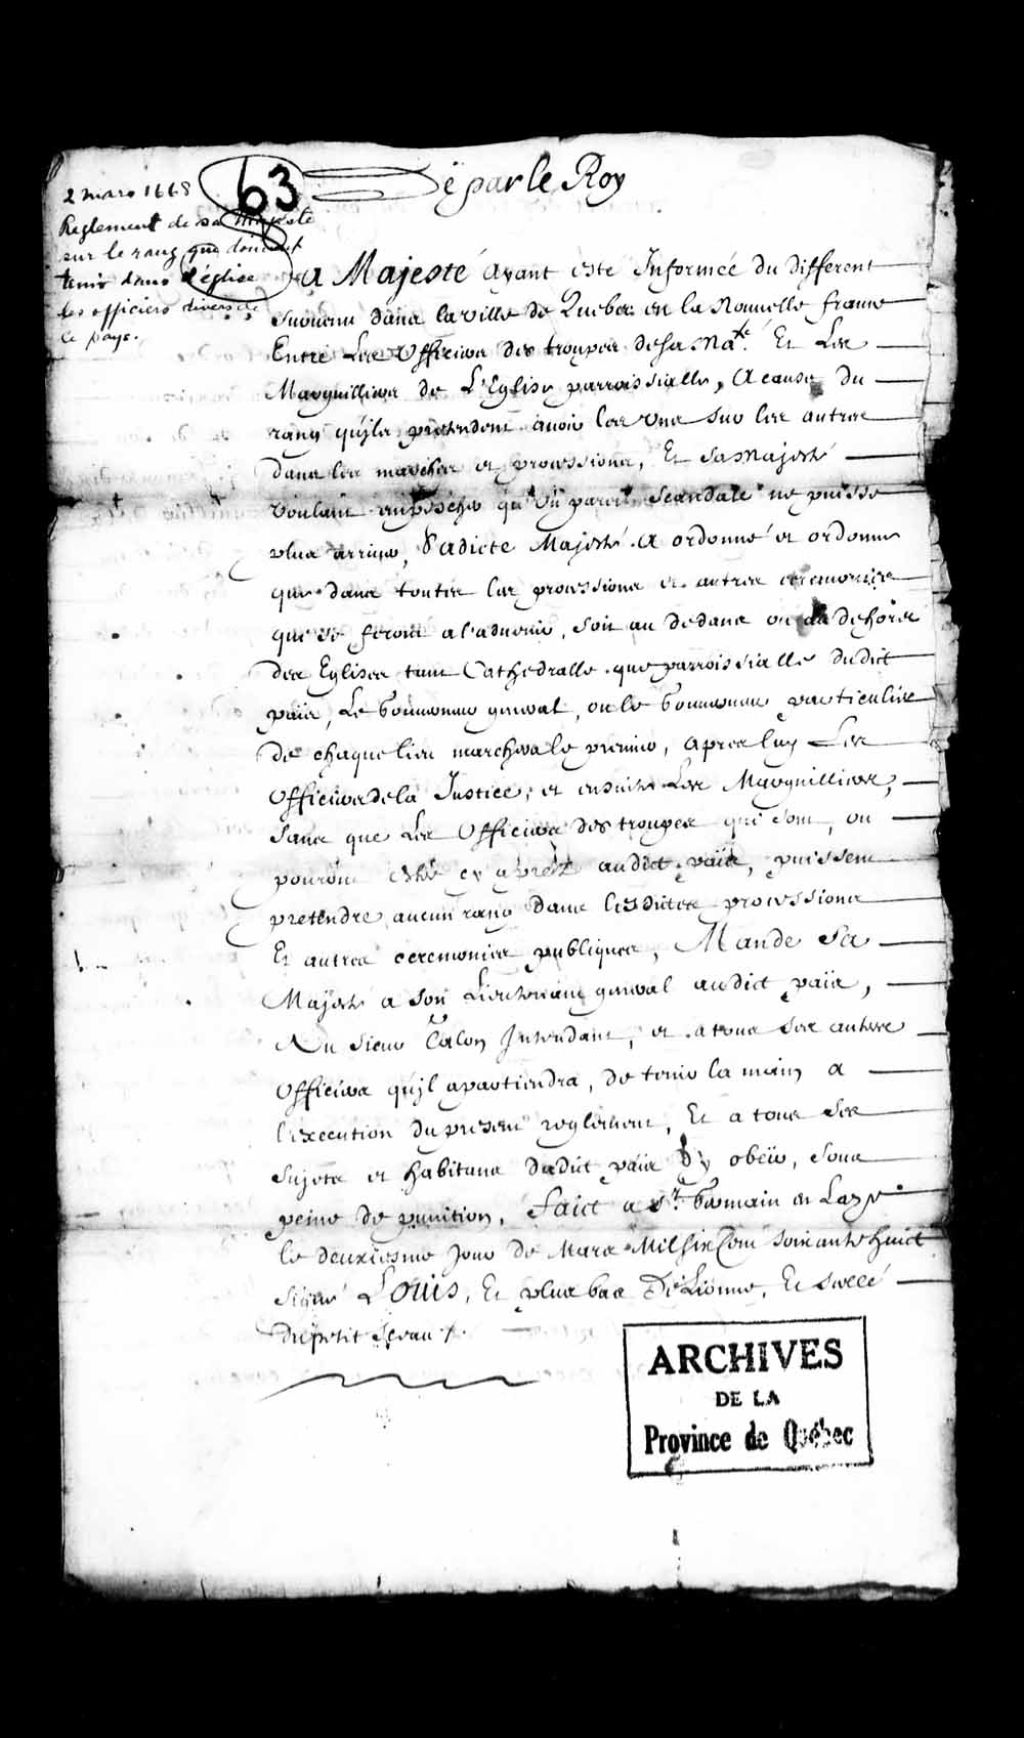 63
2 mars 1668
Reglement de sa Majesté
sur le rang que doivent
tenir dans l'église
les officiers divers de
ce pays.
De par le Roy
Sa Majesté ayant esté Informeé du different
suruenu dans la ville de Quebec en la Nouuelle france
Entre Les Officiers des troupes de sa Ma.té Et Les
Marguilliers de L'Eglise parroissialle, A cause du
rang qu'jls pretendent auoir les uns sur les autres
dans les marches et processions, Et sa Majesté
voulant empescher qu'vn pareil scandale ne puisse
plus arriuer, Sadicte Majesté a ordonné et ordonne
que dans toutes les processions et autres ceremonies
qui se feront a l'aduenir, soit au dedans ou au dehors
des Eglises tant Cathedralle que parroissialle dudict
païs, Le Gouuerneur general, ou le Gouuerneur particulier
de chaque lieu marchera le premier, apres luy Les
Officiers de la Justice, et ensuitte Les Marguilliers,
sans que Les Officiers des troupes qui sont, ou
pouront estre cy aprés audict païs, puissent
pretendre aucun rang dans lesdittes processions
Et autres ceremonies publiques, Mande Sa
Majesté a son Lieutenant general audict païs,
Au sieur Talon Intendant, et a tous ses autres
Officiers qu'jl apartiendra, de tenir la main a
l'execution du present reglement, Et a tous ses
sujets et habitans dudict païs d'y obeïr, sous
peine de punition, Faict a S.t Germain en Laye
le deuxiesme jour de Mars Mil six Cent soixante huict
signé Louis, Et plus bas De Lionne, Et scellé
du petit sceau
ARCHIVES
DE LA
Province de Québec